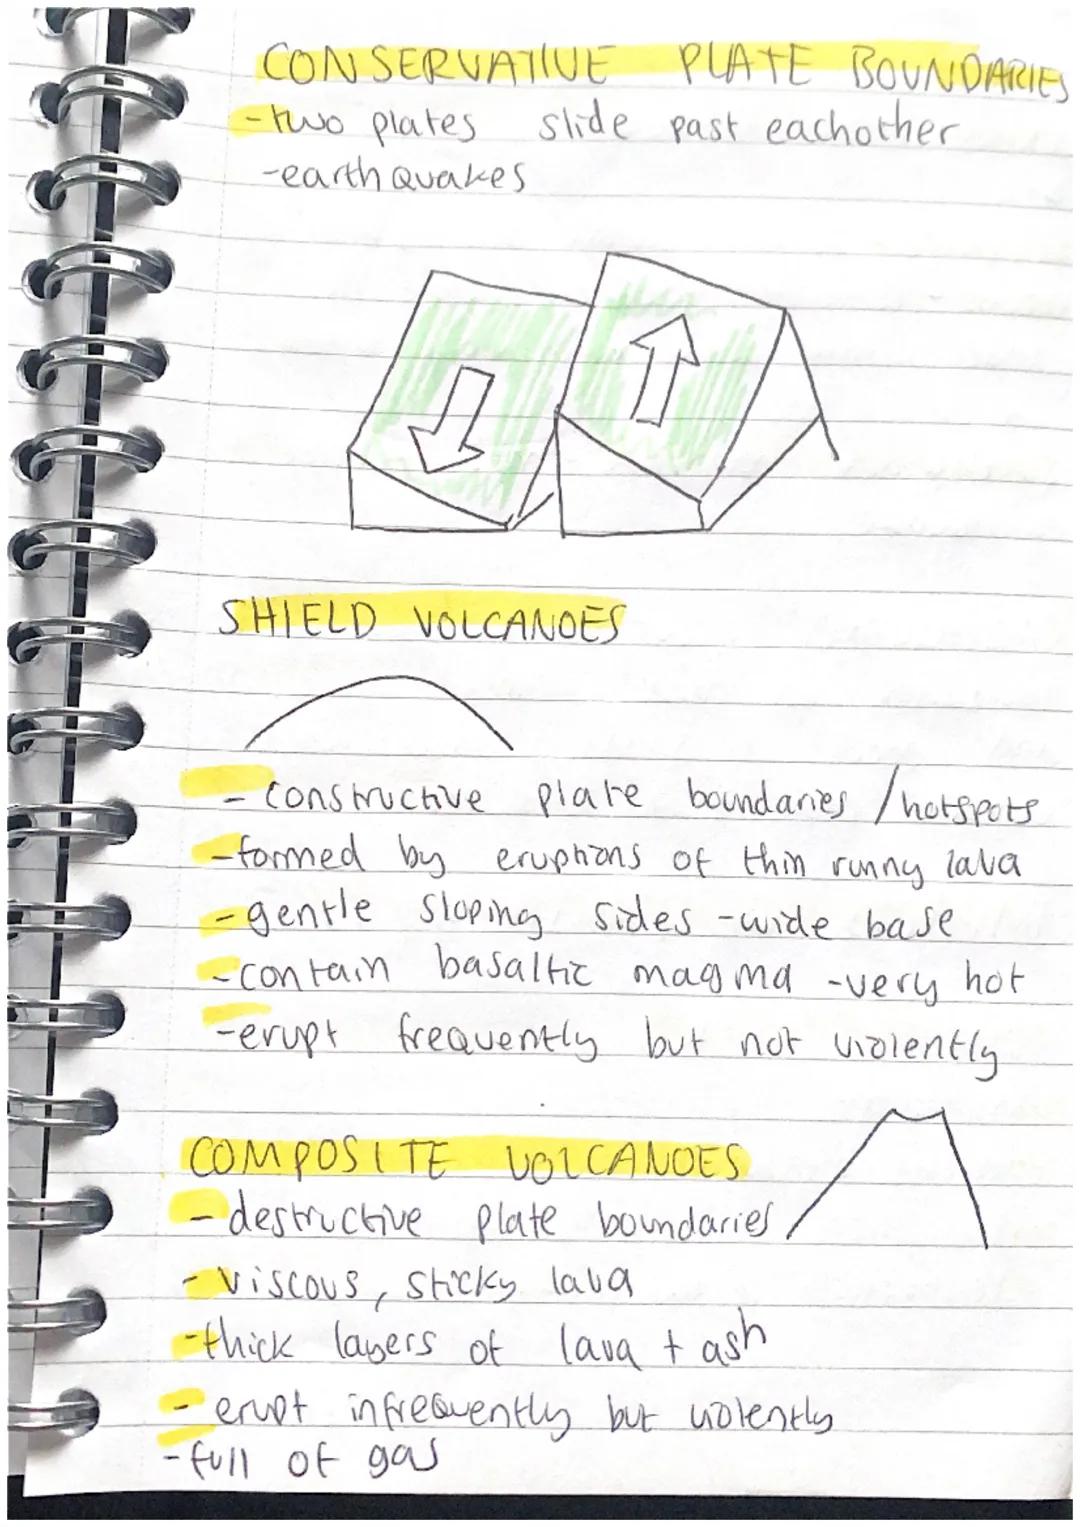 CONSERVATIVE PLATE BOUNDARIES
-two plates slide past eachother
-earthquakes
SHIELD VOLCANOES
- constructive plate boundaries / hotspots
-formed by eruptions of thin runny lava
-gentle sloping sides -wide base
-contain basaltic magma -very hot
-erupt frequently but not violently
COMPOSITE VOLCANOES
- destructive plate boundaries
- viscous, sticky lava
-thick layers of lava + ash
- erupt infrequently but violently
-full of gas